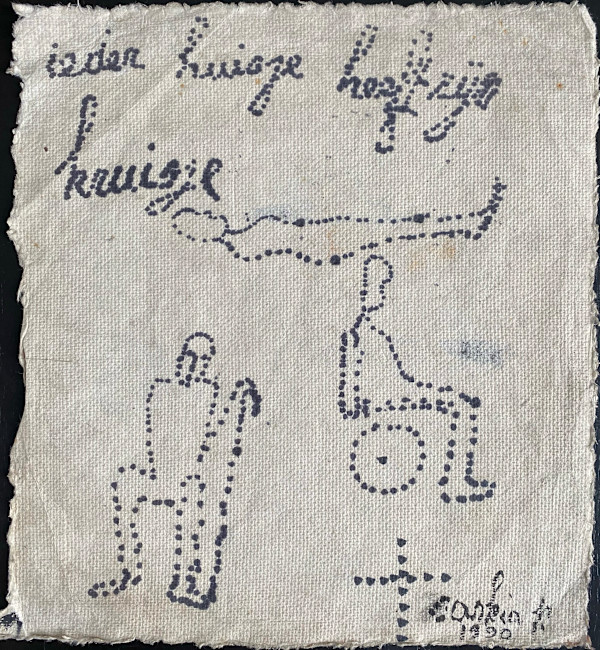 ieder huisje heeft zijn
kruisje
1990